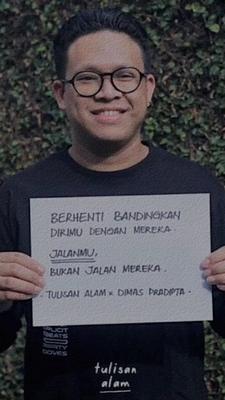 BERHENTI BANDINGKAN
DIRIMU DENGAN MEREKA.
JALANMU,
BUKAN JALAN MEREKA.
- TULISAN ALAM x DIMAS PRADIPTA -
BEATS
tulisan
alam